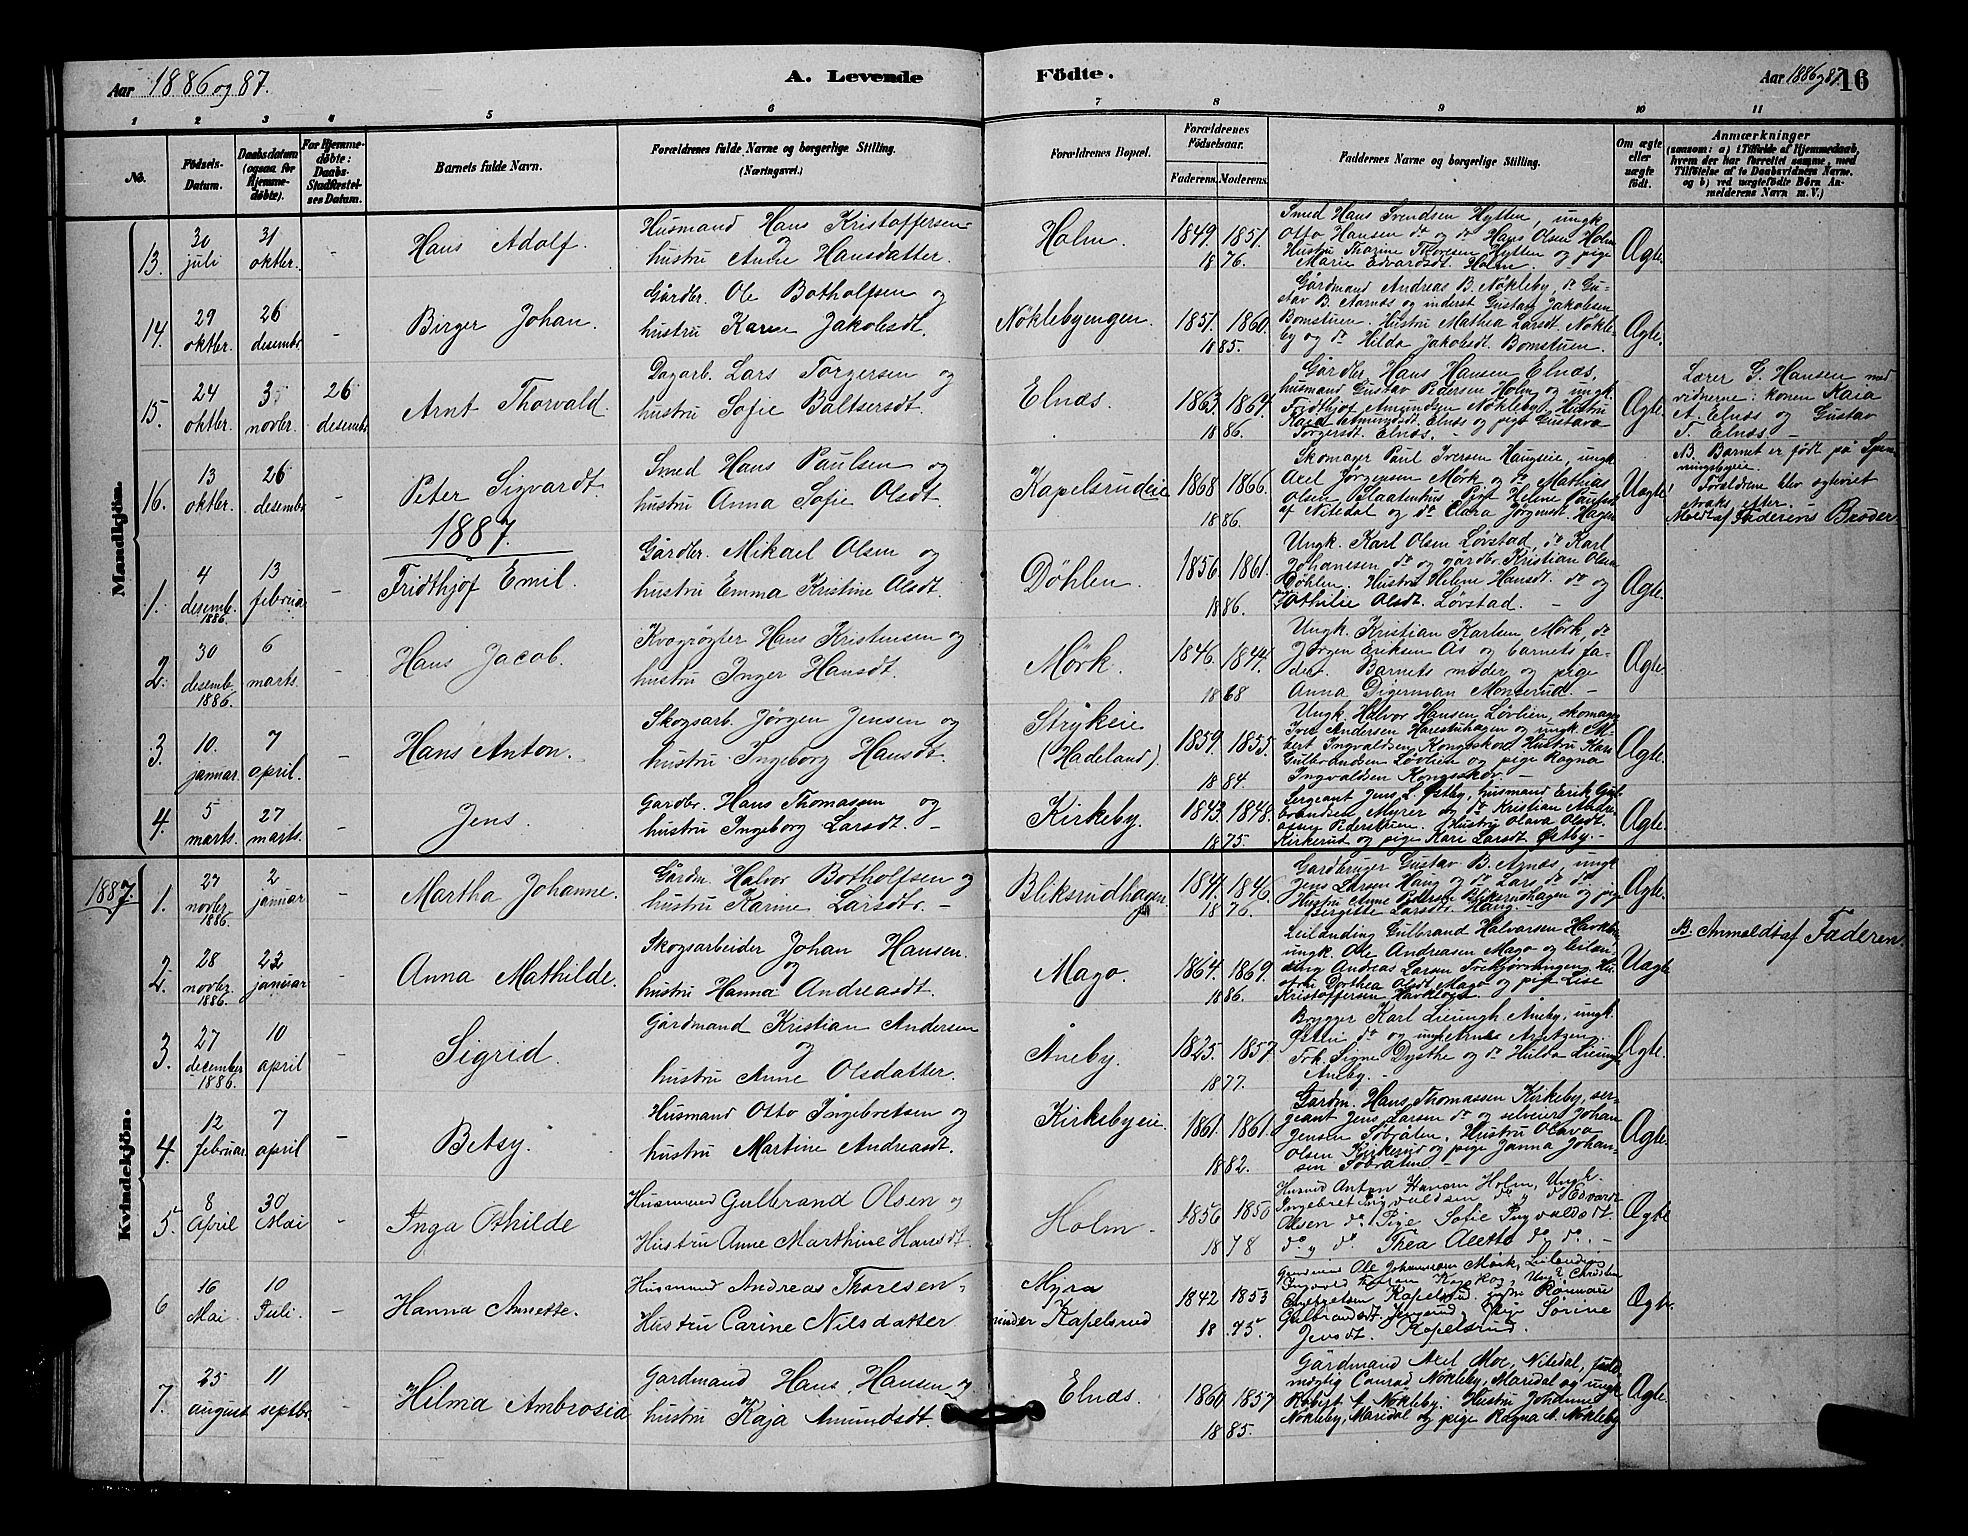 Aar 1886 og 87.
A. Levende
Födte.
Aar 1886 og 87.
16
1 2 3 4 5 6 7 8 9 10 11
No.
Födsels-Datum.
Daabsdatum (ogsaa for Hjemme-döbte).
For Hjemme-döbte: Daabs-Stadfæstel-ses Datum.
Barnets fulde Navn.
Forældrenes fulde Navne og borgerlige Stilling.
(Næringsvei.)
Forældrenes Bopæl.
Forældrenes Födselsaar.
Faderens. Moderens.
Faddernes Navne og borgerlige Stilling.
Om ægte eller uægte födt.
Anmærkninger
(saasom: a) i Tilfælde af Hjemmedaab, hvem der har forrettet samme, med Tilföielse af to Daabsvidners Navne. og b) ved uægtefödte Börn An-melderens Navn m. V.)
Mandkjön.
13. 30 juli 31 oktbr. - Hans Adolf. Husmand Hans Kristoffersen
hustru Anne Hansdatter. Holm. 1849. 1851.
1876.
Smed Hans Svendsen Hytten, ungk.
Otto Hansen do og do Hans Olsen Holm
Hustru Thorine Thoresen Hytten og pige
Marie Edvardsdt. Holm. Ægte.
14. 29 oktbr. 26 desembr. - Birger Johan. Gårdbr. Ole Botholfsen og
hustru Karen Jakobsdt. Nöklebyengen. 1851. 1860.
1885.
Gårdmand Andreas B. Nökleby, do Gu-
stav B. Aarnæs og inderst Gustav Jakobsen
Bomstuen. Hustru Mathea Larsdt. Nökle-
by og do Hilda Jakobsdt. Bomstuen. Ægte.
15. 24 oktbr. 3 novbr. 26 desembr. Arnt Thorvald. Dagarb. Lars Torgersen og
hustru Sofie Baltsersdt. Elnæs. 1863. 1864.
1886.
Gårdbr. Hans Hansen Elnæs,
husmand Gustav Pedersen Holm og ungk.
Fridthjof Amundsen Nökleby. Hustru
Kaia Amundsdt. Elnæs og pige Gustava
Torgersdt. Elnæs. - Ægte.
Lærer G. Hansen med
vidnerne: konen Kaia
A. Elnæs og Gustav
T. Elnæs -
16. 13 oktbr. 26 desembr. - Peter Sigvardt. Smed Hans Paulsen og
hustru Anna Sofie Olsdt. Kapelsrudeie 1868. 1866.
1886.
Skomager Paul Iversen Haugeie, ungk.
Axel Jörgensen Mörk og do Mathias
Olsen Slaatenhus Pige Helene Paulsdt.
af Nitedal og do Clara Jörgensdt. Hagen Uægte!
B. Barnet er födt på Spen-
ningsbyeie.
Forældrene blev egteviet
straks efter.
Meldt af Faderens Broder
1887.
1. 4 desemb. 1886. 13 februar - Fridthjof Emil. Gårdbr. Mikael Olsen og
hustru Emma Kristine Olsdt. Döhlen 1856. 1861.
1886.
Ungk. Karl Olsen Lövstad, do Karl
Johanesen do og gårdbr. Kristian Olsen
Döhlen. Hustru Helene Hansdt. do og
Othilie Olsdt. Lövstad. - Ægte.
2. 30 desemb. 1886. 6 marts. - Hans Jacob. Kvægrögter Hans Kristensen og
hustru Inger Hansdt. Mörk. 1846. 1844.
1868
Ungk. Kristian Karlsen Mörk, do
Jörgen Eriksen Ås og barnets fa-
der. Barnets moder og pige
Anna Digerman Monserud. - Ægte.
3. 10. januar. 7 april. - Hans Anton. Skogsarb. Jörgen Jensen og
hustru Ingeborg Hansdt. Strykeie
(Hadeland) 1859. 1855.
1884.
Ungk. Halvor Hansen Lövlien, skomag.
Iver Andersen Harestuhagen og ungk. Al-
bert Ingvaldsen Kongsskov Hustru Kari
Gulbrandsen Lövlien og pige Ragna
Ingvaldsen Kongsskov. - Ægte.
4. 5 marts. 27 marts. - Jens. Gardbr. Hans Thomassen og
hustru Ingeborg Larsdt. - Kirkeby. 1843. 1848.
1875.
Sergeant Jens L. Östby, Husmand Erik Gul-
brandsen Myrer og do Kristian Andre-
assen Pederstuen. Hustru Olava Olsdt.
Kirkerud og pige Kari Larsdt Östby. - Ægte.
Kvindekjön.
1887. 1. 27 novbr. 1886. 2 januar - Martha Johanne. Gårdm. Halvor Botholfsen og
hustru Karine Larsdtr. - Bliksrudhagen 1841. 1846.
1876.
Gardbruger Gustav B. Arnæs, ungk.
Jens Larsen Haug og do Lars do do
Hustru Anne Pedersen Bliksrudhagen og pige
Bergitte Larsdtr. Haug. - Ægte.
2. 28 novbr. 1886. 22 januar - Anna Mathilde. Skogsarbeider Johan Hansen
og
hustru Hanna Andreasdt. Mago. 1864. 1869.
1886.
Leilænding Gulbrand Halvorsen
ungk. Ole Andreasen Mago og leilæn-
ding Andreas Larsen Hu-
stru Dorthea Olsdt Mago og pige Lise
Kristoffersen Uægte
B. Anmeldt af Faderen.
3. 27 december 1886. 10 april - Sigrid. Gårdmand Kristian Andersen
og
hustru Anne Olsdatter. Åneby. 1825. 1857.
1877.
Brygger Karl Lieungh Aneby, ungk.
do og ungk.
Frk. Signe Dysthe og do Hulda Lieungh
Aneby. - Ægte.
4. 12 februar. 7 april - Betsy. Husmand Otto Ingebretsen og
hustru Martine Andreasdt. Kirkebyeie. 1861. 1861.
1882.
Gardm. Hans Thomassen Kirkeby, ser-
geant Jens Larsen do og selveier Johan
Jensen Söbråten. Hustru Olava
Olsen Kirkerud og pige Janna Johan-
sen Söbråten - Ægte.
5. 8 April 30 Mai - Inga Othilde Husmand Gulbrand Olsen og
Hustru Anne Marthine Hansdt. Holm. 1856 1850
1878
Husmd Anton Hansen Holm, Ungk.
Ingebret Ingvaldsen do og do Edvardt
Olsen do. Pige Sofie Ingvaldsdt.
do og do Thea Alette do do. - Ægte
6 16 Mai. 10 Juli. - Hanna Annette. Husmand Andreas Thoresen.
Hustru Carine Nilsdatter. Myra
under Kapelsrud 1842 1853
1875.
Gaardmd Ole Johannesen Mörk, Leilending
Ingvald Ungk. Christen
Engebretsen Kapelsrud.
Gulbrandsdt. Pige Sörine
Jensdt. Kapelsrud. Ægte
7. 25 august 11 septbr. - Hilma Ambrosia Gardmand Hans Hansen og
hustru Kaja Amundsdt. Elnæs. 1860 1857
1885.
Gårdmand Axel Moe, Nitedal, fuld-
mægtig Conrad Nökleby, Maridal og ungk.
Robert A. Nökleby. Hustru Johanne
Nökleby, Maridal og pige Ragna A. Nökleby Ægte.